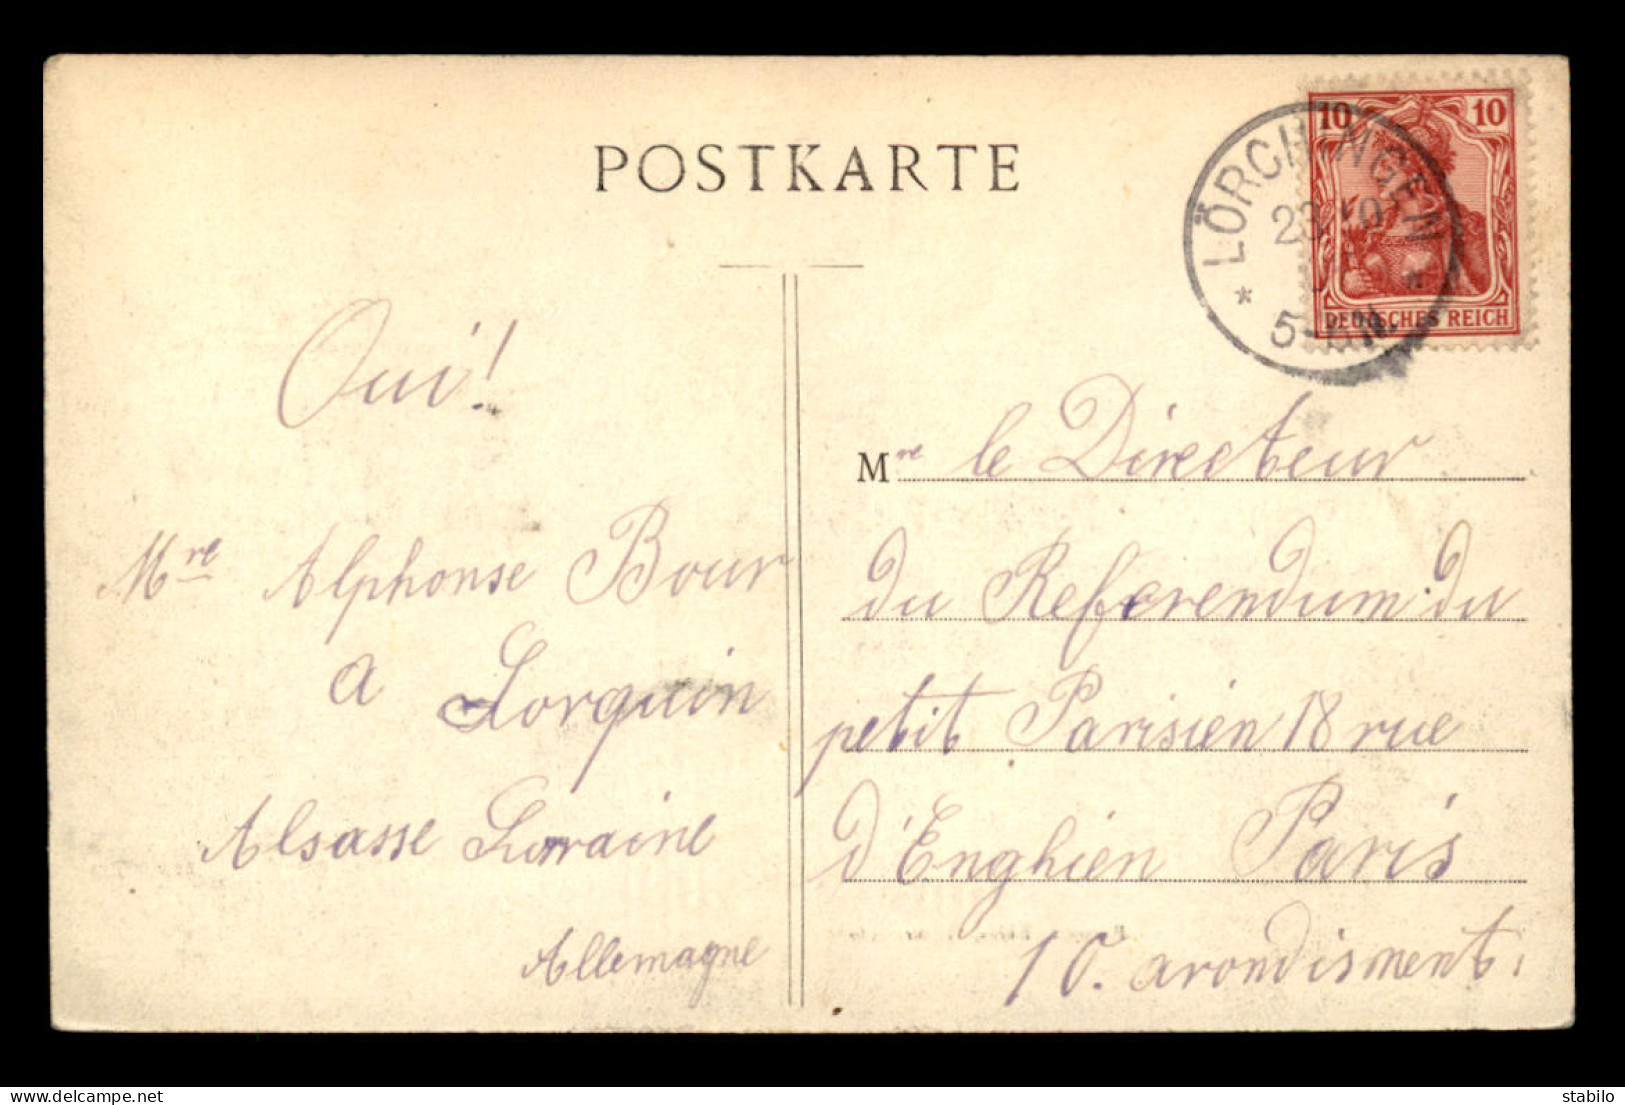 POSTKARTE
10 10
DEUTSCHES REICH
LÖRCHINGEN
23.10
5-6N.
Oui!
Mre Alphonse Bour
a Lorquin
Alsasse Lorraine
Allemagne
Mre le Directeur
du Referendum du
petit Parisien 18 rue
d'Enghien Paris
10. arondisment.
stabilo